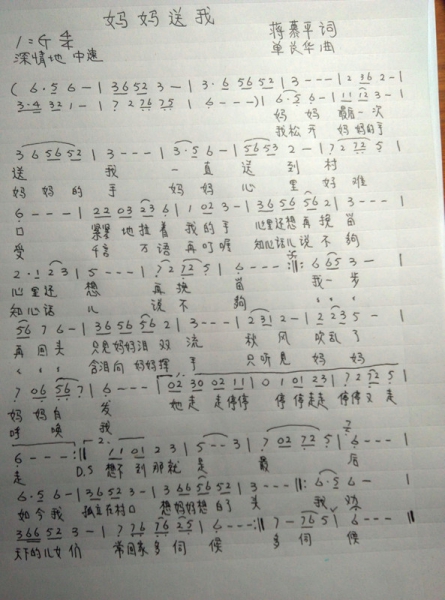 妈妈送我
蒋慕平词
1=G
深情地 中速
单良华曲
( 6·5 6 - | 3652 3 - | 3·6 5652 | 3 - - - | 2 36 2 - |
3·4 32 1 - | 7 2 76 75 | 6 - - - )| 6·5 6 - | 11 12 3 - |
妈妈 最后一次
我松开 妈妈的手
3 6 5652 | 3 - - - | 3·5 6 - | 5653 2 - | 7 2 72 5 |
送 我 一直 送到村
妈妈的手 妈妈心里好难
6 - - - | 22 03 23 6 | 1 02 3 - | 36 56 56 2 | 3 - - - |
口 紧紧地拉着我的手 心里还想再挽留
受 千言万语再叮咛 知心话儿说不够
2·1 2 3 | 5 - - - | 7 2 72 5 | 6 - - - :||: 6 65 3 - |
心里还想 再挽留 我一步
知心话儿 说不够
56 7 6 - | 36 56 56 2 | 3 - - - | 2 31 2 - | 2 23 5 - |
再回头 只见妈妈泪双流 秋风吹乱了
含泪向妈妈挥手 只听见妈妈
7 06 56 7 | 6 - - - | 02 30 02 11 | 0 1 01 23 | 7 2 52 5 |
妈妈白发 她走走停停 停停走走停停又走
呼唤我
6 - - - :|| 2. 11 01 2 3 | 5 - - 3 | 7 02 72 5 | 6 - - - |
走 D.S 想不到那就是最后
6·5 6 - | 3652 3 - | 3 66 56 52 | 3 - - - ||: 6·5 6 -|
如今我 孤立在村口 想妈妈想白了头 我劝
366 52 3 - | 7 76 76 25 | 6 - - - :|| 7 - 76 5 | 6 - - - ||
天下的儿女们 常回家多伺候 多伺候